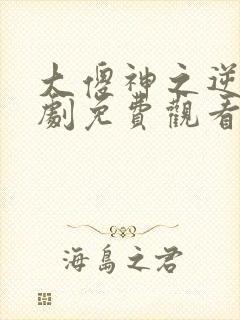 大傻神之逆
劇免費觀看
海島之君